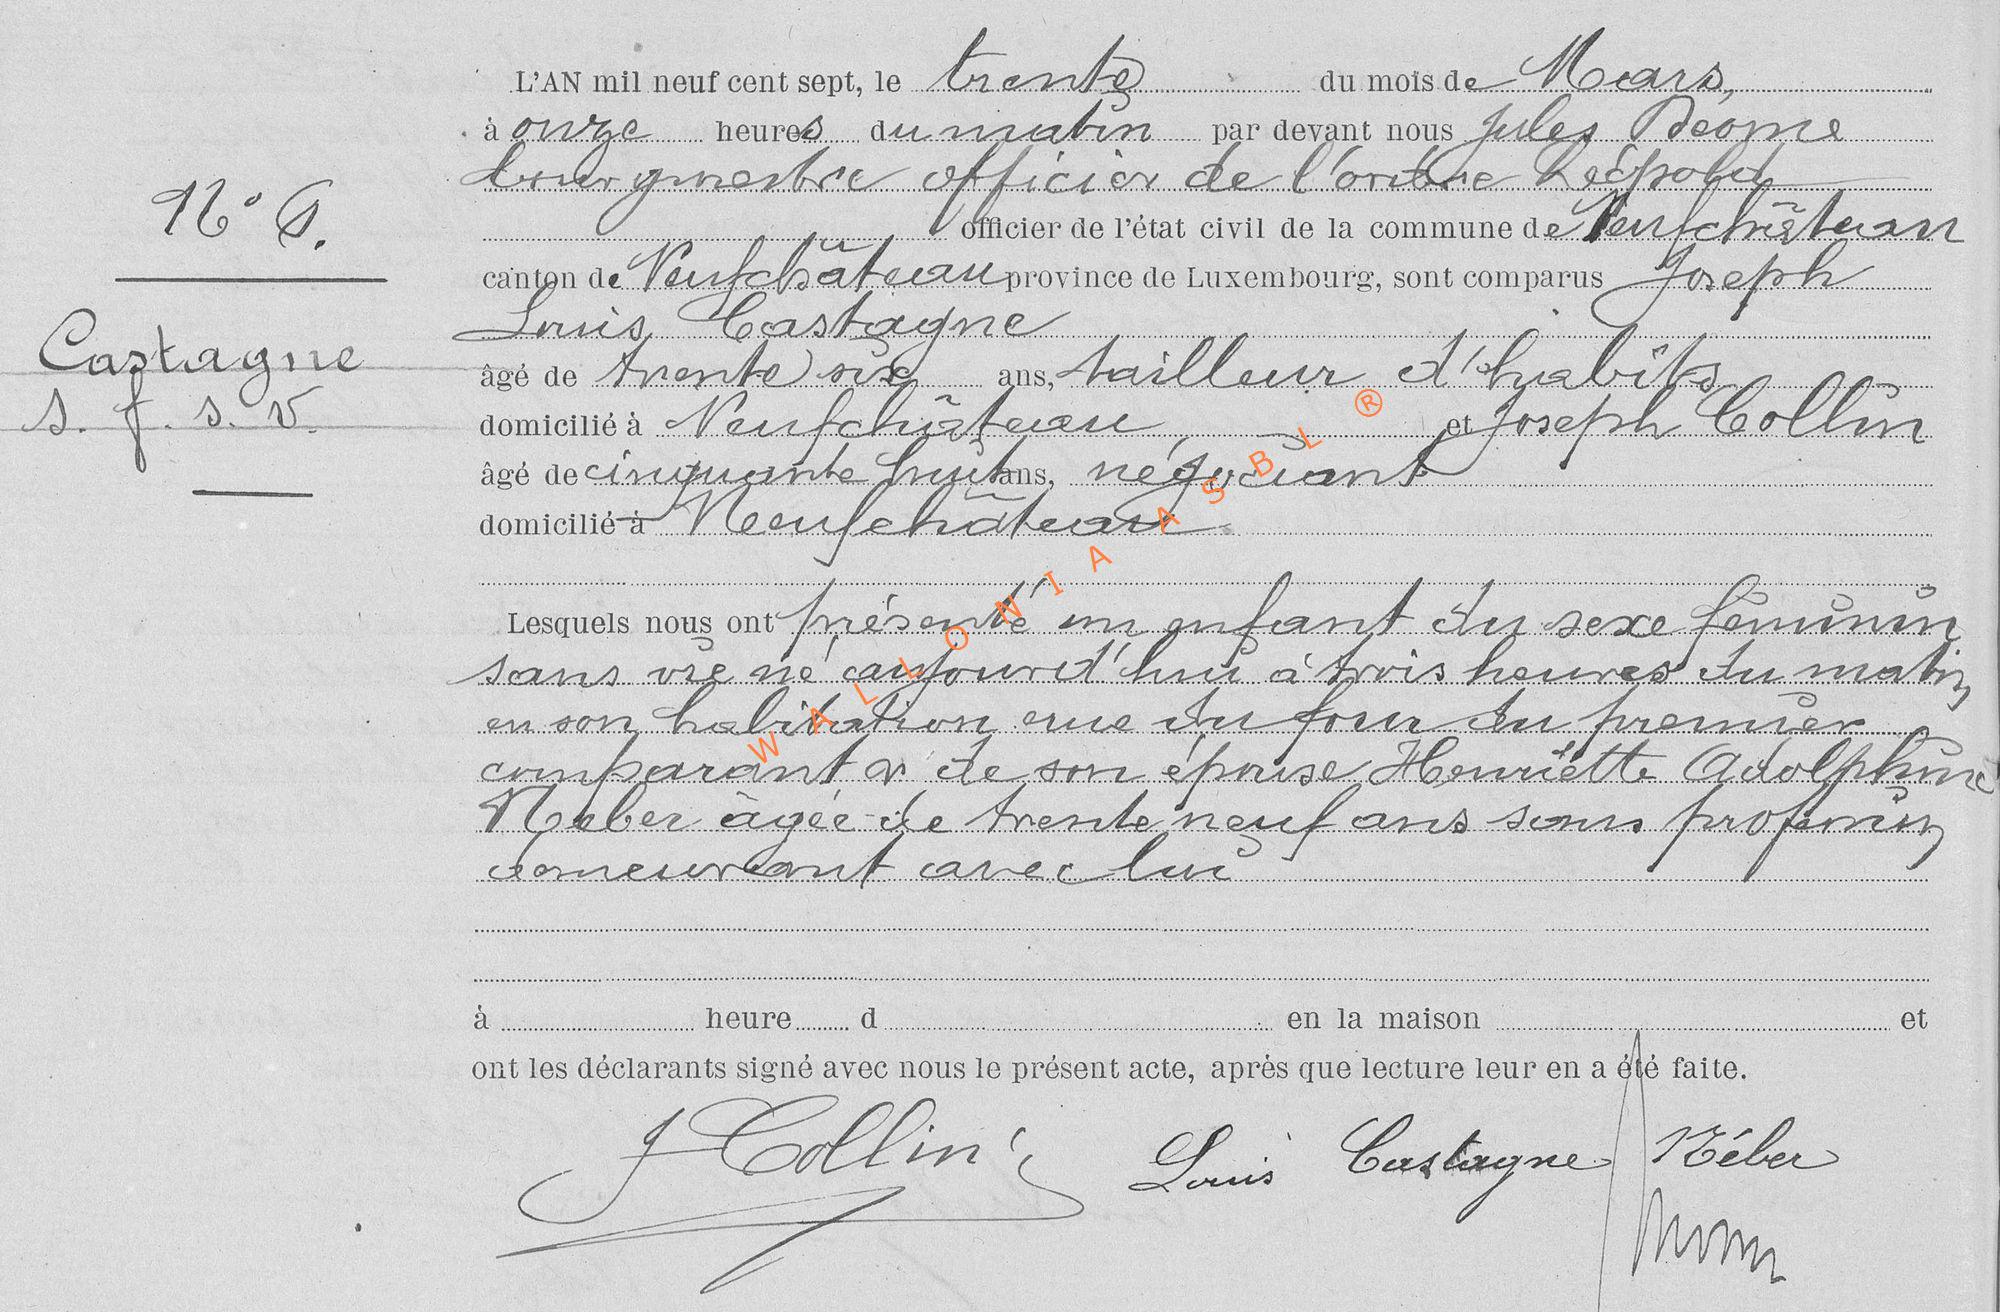 L'AN mil neuf cent sept, le trente du mois de Mars,
à onze heures du matin par devant nous Jules
bourgmestre officier de l'ordre Léopold
N° 6. officier de l'état civil de la commune de Neufchâteau
canton de Neufchâteau province de Luxembourg, sont comparus Joseph
Louis Castagne
Castagne
âgé de trente six ans, tailleur d'habits
s. f. s. v.
domicilié à Neufchâteau et Joseph Collin
âgé de cinquante huit ans, négociant
domicilié à Neufchâteau
Lesquels nous ont présenté un enfant du sexe féminin
sans vie né aujourd'hui à trois heures du matin
en son habitation rue du four du premier
comparant & de son épouse Henriette Adolphine
Neber âgée de trente neuf ans sans profession
demeurant avec lui
à heure d en la maison et
ont les déclarants signé avec nous le présent acte, après que lecture leur en a été faite.
J Collin Louis Castagne Néber
WALLONIA ASBL ®